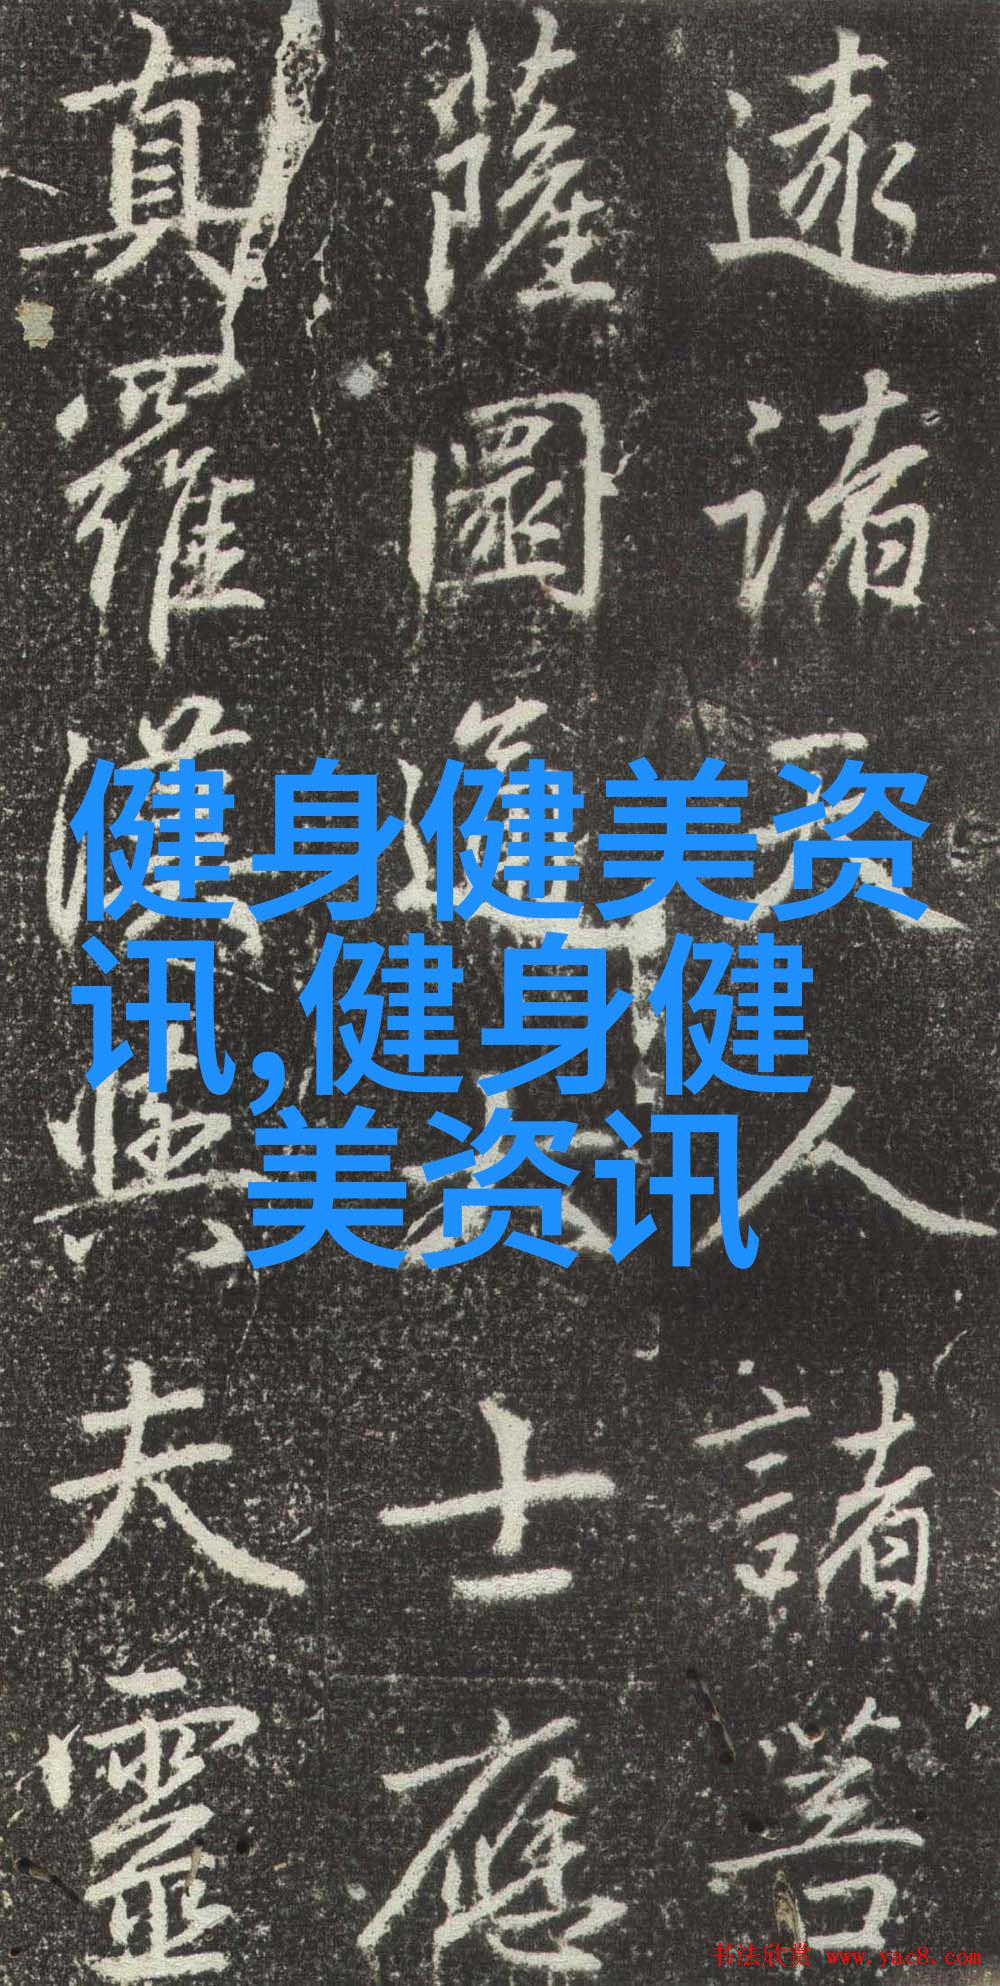 逮諸天人諸菩
薩圓通大士應
真羅漢與夫靈
健身健美资
讯,健身健
美资讯
书法欣赏 www.yac8.com